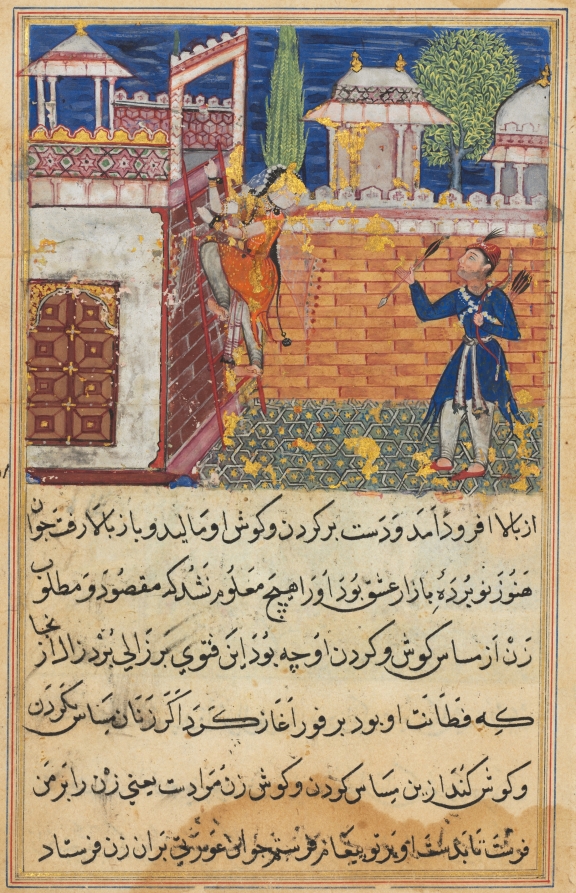 از بالا افرود آمد و دست برکردن و کوش او مالید و باز بالا رفت جوان
هنوز نو بردهٔ بازار عشق بود او را هیچ معلوم نشد که مقصود و مطلوب
زن از مساس کوش و کردن او چه بود این فتوی بر زالی برد زال از نجا
که فطانت او بود بر فور آغاز کرد اکر زنان مساس بکردن
و کوش کنند از بن مساس کردن و کوش زن مراد ست یعنی زن را بر من
فرست تا بدست او بر تو پیغام فرستم جوان عورتی بران زن فرستاد